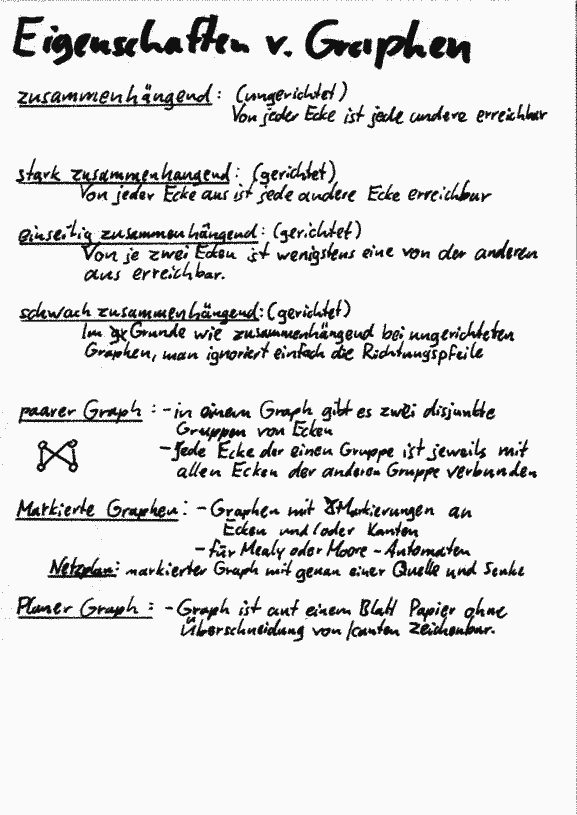 Eigenschaften v. Graphen
zusammenhängend: (ungerichtet)
Von jeder Ecke ist jede andere erreichbar
stark zusammenhängend: (gerichtet)
Von jeder Ecke aus ist jede andere Ecke erreichbar
einseitig zusammenhängend: (gerichtet)
Von je zwei Ecken ist wenigstens eine von der anderen
aus erreichbar.
schwach zusammenhängend: (gerichtet)
Im Grunde wie zusammenhängend bei ungerichteten
Graphen, man ignoriert einfach die Richtungspfeile
paarer Graph: - in einem Graph gibt es zwei disjunkte
Gruppen von Ecken
- Jede Ecke der einen Gruppe ist jeweils mit
allen Ecken der anderen Gruppe verbunden
Markierte Graphen: - Graphen mit Markierungen an
Ecken und/oder Kanten
- für Mealy oder Moore-Automaten
Netzplan: markierter Graph mit genau einer Quelle und Senke
Planer Graph: - Graph ist auf einem Blatt Papier ohne
Überschneidung von Kanten zeichenbar.